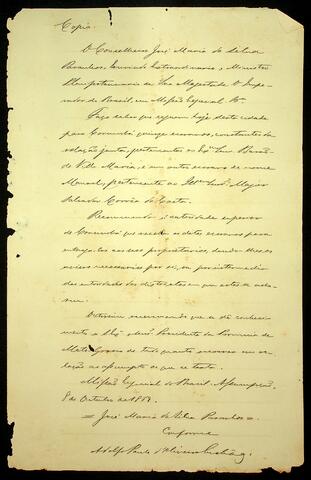 Copia.
O Conselheiro José Maria da Silva
Paranhos, Enviado Extraordinario e Ministro
Plenipotenciario de Sua Magestade O Impe-
rador do Brasil, em Missão Especial &ª.
Faço saber que seguem hoje desta cidade
para Corumbá quinze escravos, constantes da
relação junta, pertencentes ao Exmo Snr Barão
de Villa Maria, e um outro escravo de nome
Manoel, pertencente ao Snr. Major
Salvador Corrêa da Costa.
Recommendo á autoridade superior
de Corumbá que os ditos escravos para
entregal-os aos seus proprietarios, dando-lhes os
avisos necessarios por si, ou por intermedio
das autoridades dos districtos em que estes se acha-
rem.
Outrosim recommendo que se dê conheci-
mento a S. Exª o Snr. Presidente da Provincia de
Mato Grosso de tudo quanto occorrer em re-
lação ao assumpto de que se trata.
Missão Especial do Brasil. Assumpção,
8 de Outubro de
= José Maria da Silva Paranhos =.
Conforme
Adolpho Paulo d'Oliveira Lisboa